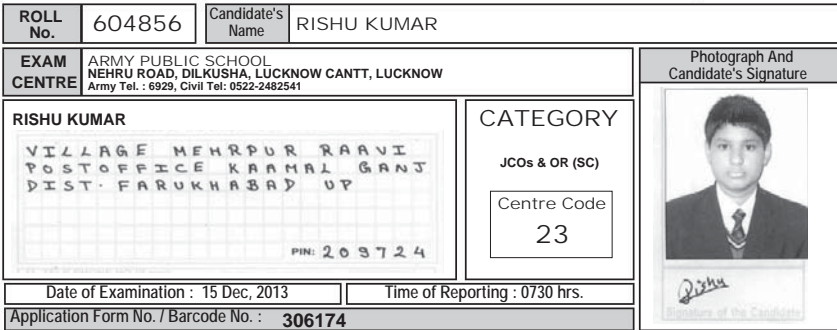 ROLL No. 604856 Candidate's Name RISHU KUMAR
EXAM CENTRE
ARMY PUBLIC SCHOOL
NEHRU ROAD, DILKUSHA, LUCKNOW CANTT, LUCKNOW
Army Tel. : 6929, Civil Tel: 0522-2482541
Photograph And
Candidate's Signature
RISHU KUMAR
VILLAGE MEHRPUR RAAVI
POSTOFFICE KAAMAL GANJ
DIST. FARUKHABAD UP
PIN: 209724
CATEGORY
JCOs & OR (SC)
Centre Code
23
Rishu
Signature of the Candidate
Date of Examination : 15 Dec, 2013 Time of Reporting : 0730 hrs.
Application Form No. / Barcode No. : 306174